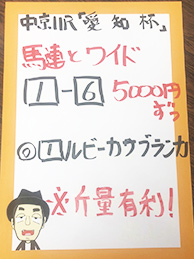 中京11R「愛知杯」
馬連とワイド
1-6 5000円ずつ
◎1ルビーカサブランカ
※斤量有利!